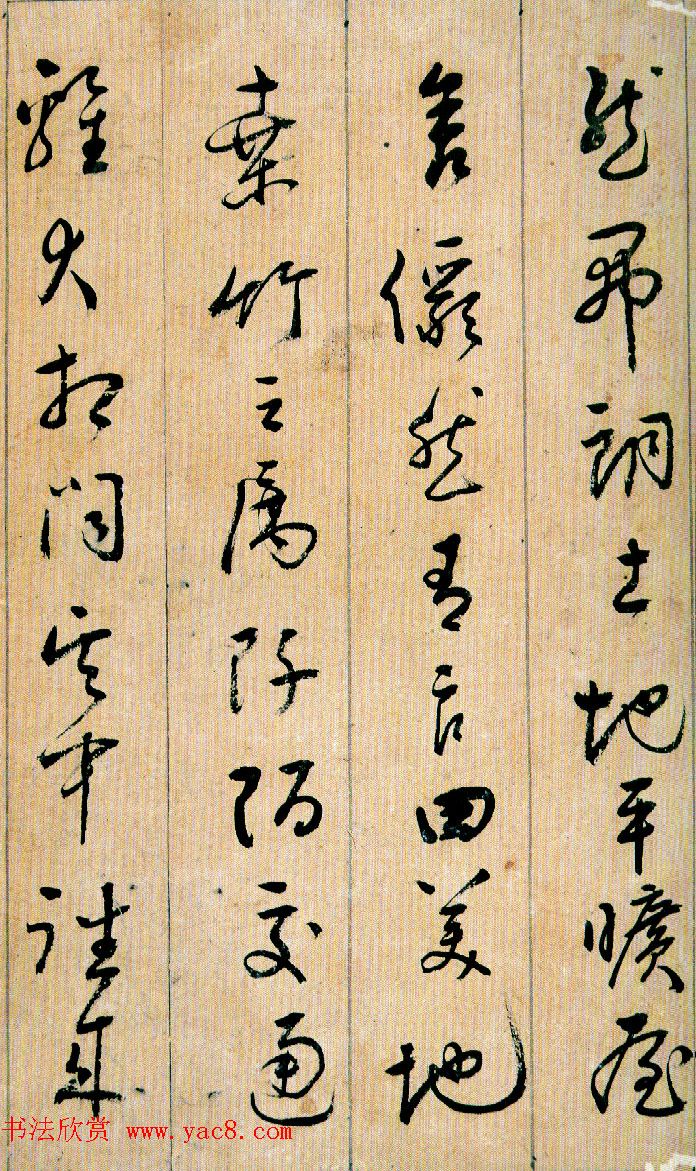 然開朗土地平曠屋
舍儼然有良田美池
桑竹之屬阡陌交通
雞犬相聞其中往來
书法欣赏 www.yac8.com